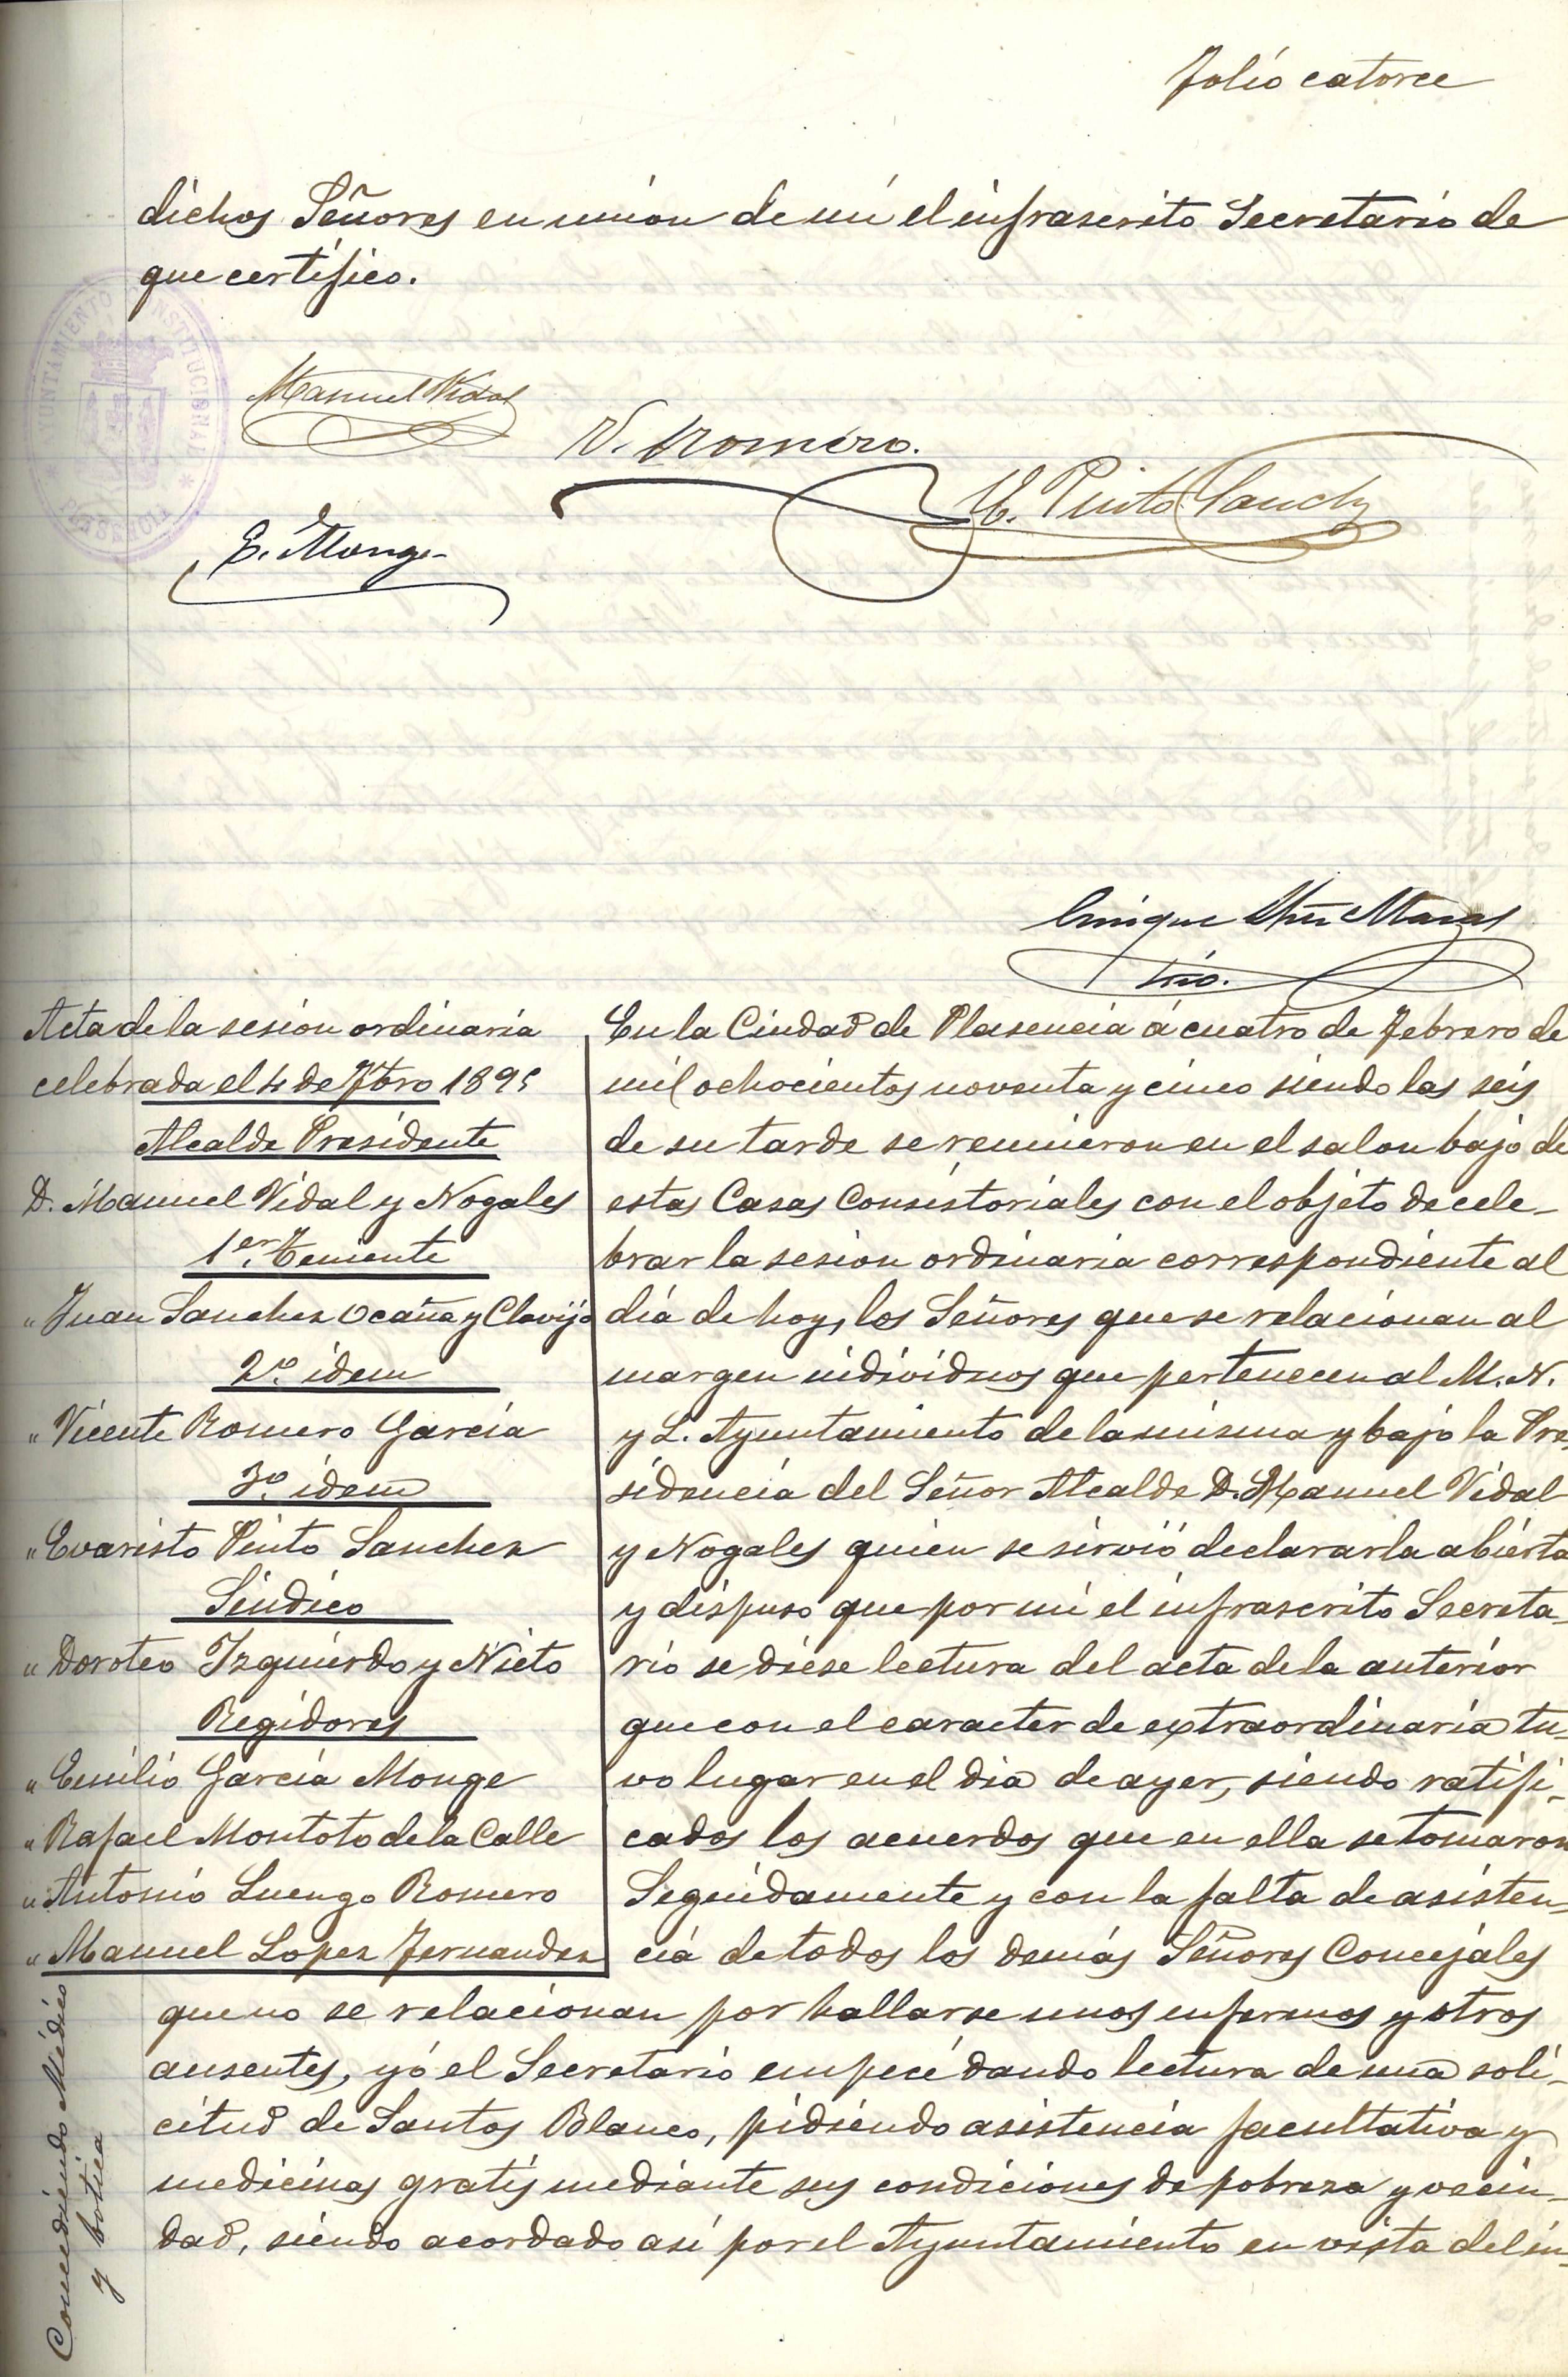 Folio catorce
dichos Señores en union de mí el infrascrito Secretario de
que certifico.
AYUNTAMIENTO CONSTITUCIONAL
* PLASENCIA *
Manuel Vidal
V. Romero.
E. Pinto Sanchz
E. Monge
Enrique
Srio.
Acta de la sesion ordinaria
celebrada el 4 de Fbro 1895
Alcalde Presidente
D. Manuel Vidal y Nogales
1er. Teniente
" Juan Sanchez Ocaña y Clavijo
2º. idem
" Vicente Romero García
3º. idem
" Evaristo Pinto Sanchez
Sindico
" Doroteo Izquierdo y Nieto
Regidores
" Emilio García Monge
" Rafael Montoto de la Calle
" Antonio Luengo Romero
" Manuel Lopez Fernandez
En la Ciudad de Plasencia á cuatro de Febrero de
mil ochocientos noventa y cinco siendo las seis
de su tarde se reunieron en el salon bajo de
estas Casas Consistoriales con el objeto de cele-
brar la sesion ordinaria correspondiente al
día de hoy, los Señores que se relacionan al
margen individuos que pertenecen al M. N.
y L. Ayuntamiento de la misma y bajo la Pre-
sidencia del Señor Alcalde D. Manuel Vidal
y Nogales quien se sirvió declararla abierta
y dispuso que por mí el infrascrito Secreta-
rio se diese lectura del acta de la anterior
que con el caracter de extraordinaria tu-
vo lugar en el dia de ayer, siendo ratifi-
cados los acuerdos que en ella se tomaron
Seguidamente y con la falta de asisten-
cia de todos los demás Señores Concejales
que no se relacionan por hallarse unos enfermos y otros
ausentes, yó el Secretario empecé dando lectura de una soli-
citud de Santos Blanco, pidiendo asistencia facultativa y
medicinas gratis mediante sus condiciones de pobreza y vecin-
dad, siendo acordado así por el Ayuntamiento en vista del in-
Concediendo Médico
y botica